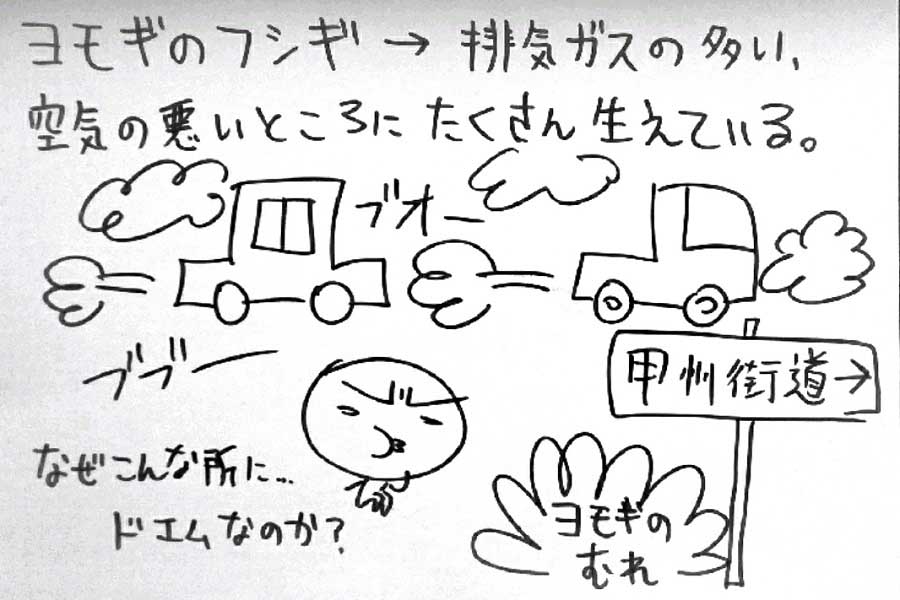 ヨモギのフシギ→排気ガスの多い、
空気の悪いところにたくさん生えている。
ブオー
ブブー
甲州街道→
なぜこんな所に…
ドエムなのか？
ヨモギの
むれ